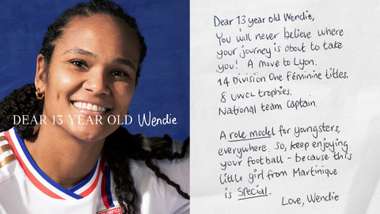 DEAR 13 YEAR OLD Wendie
Dear 13 year old Wendie,
You will never believe where
your journey is about to take
you! A move to Lyon.
14 Division One Féminine titles.
8 UWCL trophies.
National team captain
A role model for youngsters,
everywhere. So, keep enjoying
your football - because this
little girl from Martinique
is special.
Love, Wendie